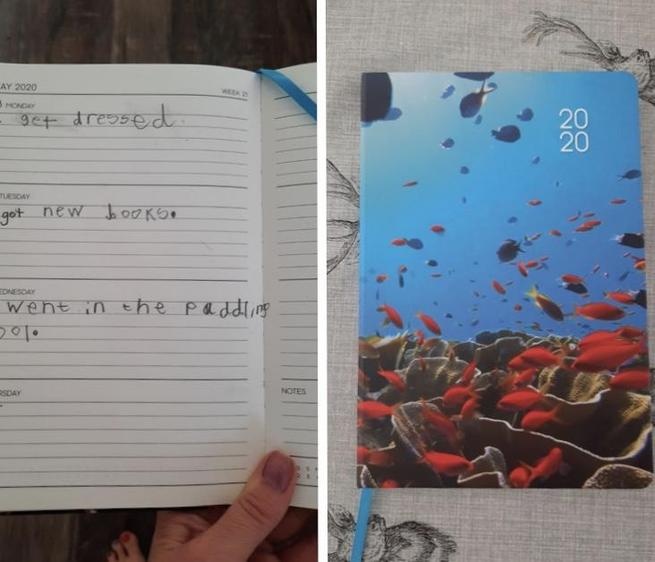 AY 2020
WEEK 21
MONDAY
get dressed.
TUESDAY
got new books.
EDNESDAY
went in the paddling
ool.
RSDAY
NOTES
20
20